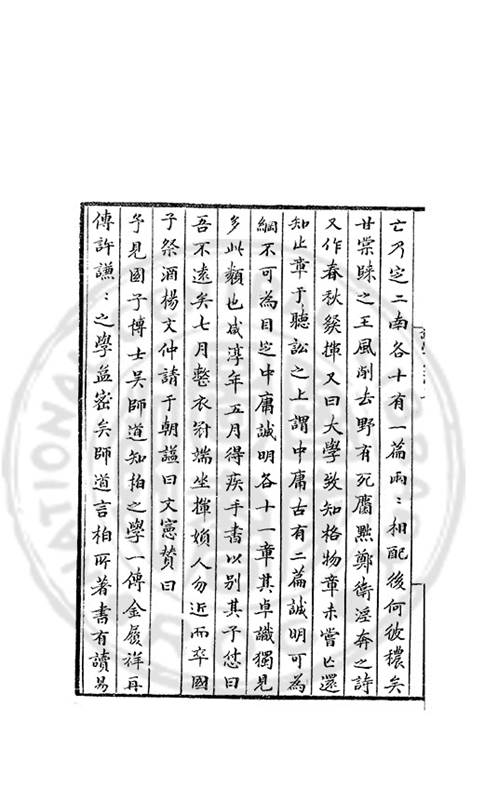 亡乃定二南各十有一篇兩〻相配後何彼穠矣
甘棠歸之王風削去野有死麕黜鄭衛淫奔之詩
又作春秋發揮又曰大學致知格物章未嘗亡還
知止章于聽訟之上謂中庸古有二篇誠明可為
綱不可為目定中庸誠明各十一章其卓識獨見
多此類也咸淳年五月得疾手書以别其子㤀曰
吾不遠矣七月整衣冠端坐揮婦人勿近而卒國
子祭酒楊文仲請于朝謚曰文憲贊曰
予見國子博士吳師道知柏之學一傳金履祥再
傳許謙〻之學益密矣師道言柏所著書有讀易